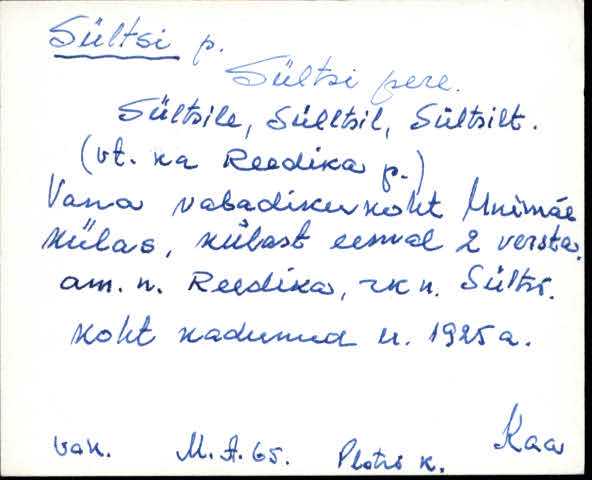 Sültsi p.
Sültsi pere.
Sültsile, Sülltsil, Sültsilt.
(vt. ka Reedika p.)
Vana vabadikukoht Unimäe
külas, külast eemal 2 versta.
am. n. Reedika, rk n. Sültsi.
koht kadunud u. 1925 a.
Kaa
vak. M. A. 65. k.